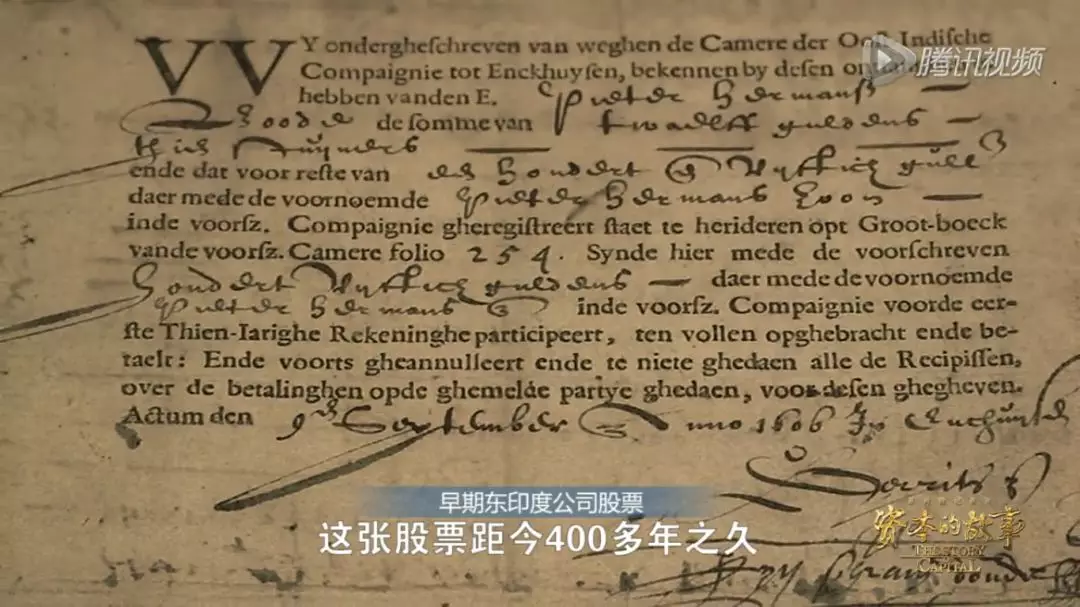 VVY ondergheschreven van weghen de Camere der Oost-Indische
腾讯视频
Compaignie tot Enckhuysen, bekennen by desen
hebben vanden E. Pieter Hermansz
de somme van twaelff guldens
ende dat voor reste van hondert Vyftich
daer mede de voornoemde Pieter Hermans
inde voorsz. Compaignie gheregistreert staet te herideren opt Groot-boeck
vande voorsz. Camere folio 254. Synde hier mede de voorschreven
hondert Vyftich guldens daer mede de voornoemde
Pieter Hermans inde voorsz. Compaignie voorde eer-
ste Thien-Iarighe Rekeninghe participeert, ten vollen opghebracht ende be-
taelt: Ende voorts gheannulleert ende te niete ghedaen alle de Recipissen,
over de betalinghen opde ghemelde partye ghedaen, voor desen ghegheven.
Actum den 9 September Anno 1606
早期东印度公司股票
这张股票距今400多年之久
资本的故事
THE STORY
CAPITAL